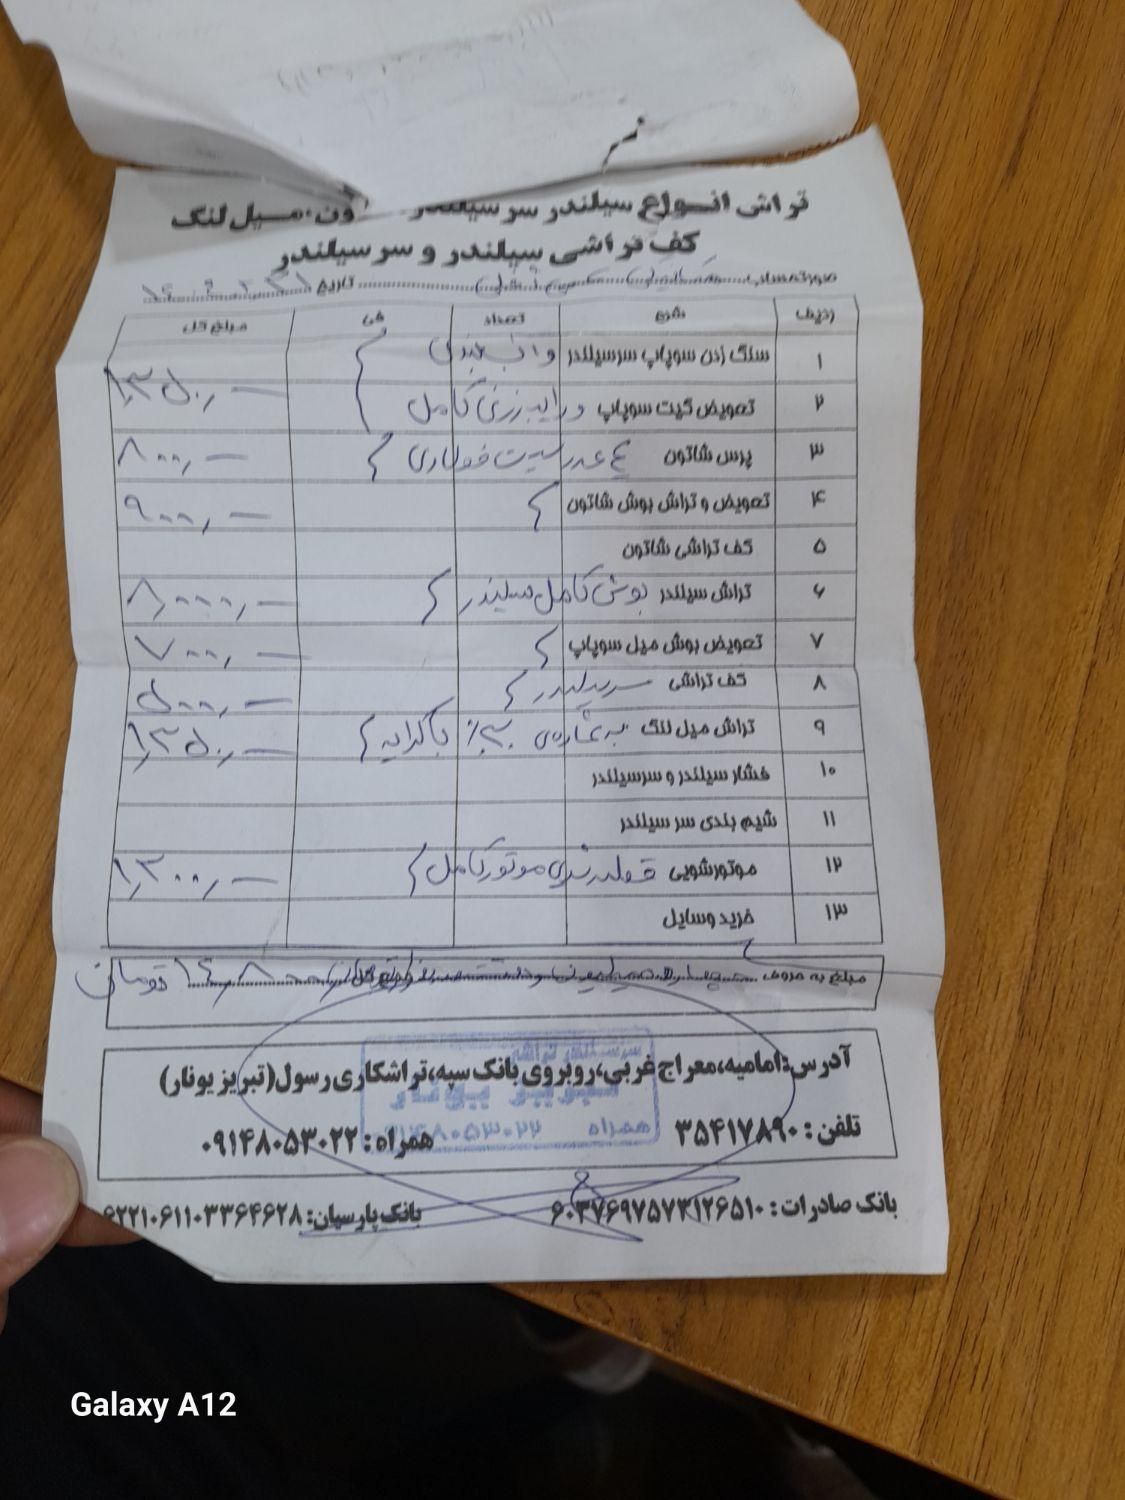 تراشی انواع سیلندر سر سیلندر ون، میل لنگ
کف تراشی سیلندر و سر سیلندر
صورتحساب تاریخ
ردیف شرح تعداد فی مبلغ کل
۱ سنگ زدن سوپاپ سرسیلندر و آب بندی
۲ تعویض گیت سوپاپ کامل ۱,۳۵۰,۰
۳ پرس شاتون ۴ عدد سیت فولادی ۸۰۰,۰
۴ تعویض و تراش بوش شاتون ۹۰۰,۰
۵ کف تراشی شاتون
۶ تراش سیلندر بوش کامل سیلندر ۸,۰۰۰,۰
۷ تعویض بوش میل سوپاپ ۷۰۰,۰
۸ کف تراشی سرسیلندر ۵۰۰,۰
۹ تراش میل لنگ به شماره‌ی
۱۰ فشار سیلندر و سرسیلندر
۱۱ شیم بندی سر سیلندر
۱۲ موتورشویی موتور کامل ۱,۲۰۰,۰
۱۳ خرید وسایل
مبلغ به حروف تومان
آدرس: امامیه، معراج غربی، روبروی بانک سپه، تراشکاری رسول (تبریز یونار)
تلفن: ۳۵۴۱۷۸۹۰ همراه: ۰۹۱۴۸۰۵۳۰۲۲
بانک صادرات: ۶۰۳۷۶۹۷۵۷۳۱۲۶۵۱۰ بانک پارسیان: ۶۲۲۱۰۶۱۱۰۳۳۶۴۶۲۸
Galaxy A12